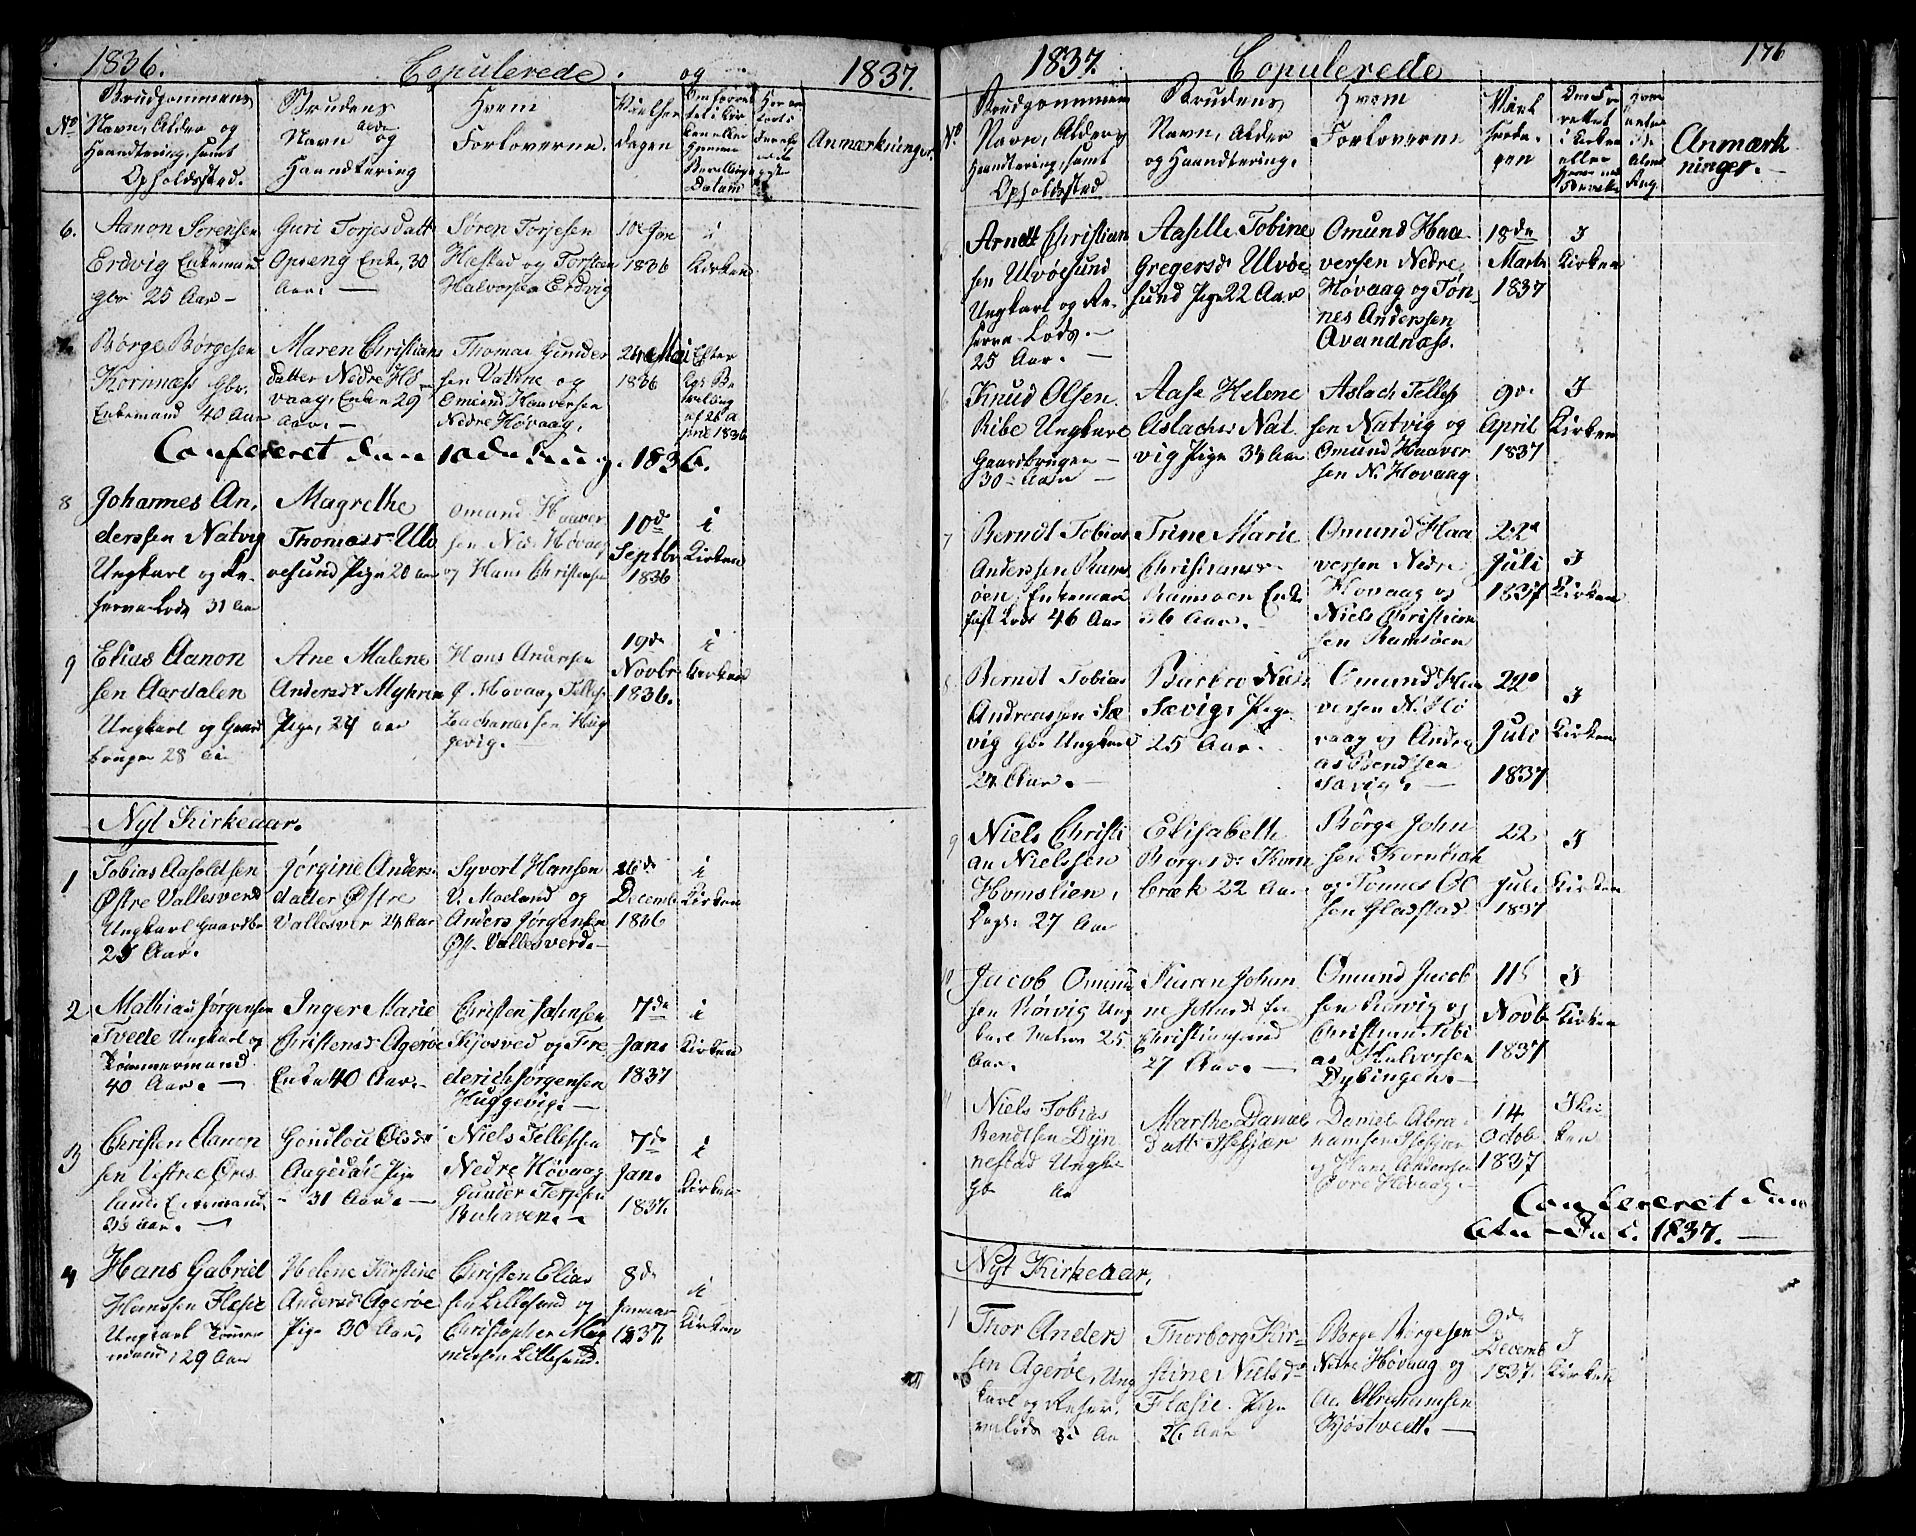 1836. Copulerede. og 1837.
No
Brudgommens
Navn, Alder og
Haandtering, samt
Opholdssted.
Brudens
Navn Alder og
Haandtering
Hvem
Forloverne.
Vielses
dagen
Anmærkninger.
6.
Aanon Sørensen
Erdvig Enkemand
Gbr 25 Aar
Guri Torjesdatt
Opsæng Enke, 30
Aar.
Søren Torjesen
Hæstad og Torsten
Halvorsen Erdvig
10de
1836
i
Kirken
7.
Børge Børgesen
Kornnæss Gbr.
Enkemand 40 Aar
Maren Christians
datter Nedre Hö-
vaag, Enke 29
Aar.
Thomas Gunder
sen Vatne og
Omund Haaversen
Nedre Høvaag.
24 Mai
1836
Efter
Confereret den 10de Aug. 1836.
8
Johannes An-
derssen Natvig
Ungkarl og Re-
serve Lods 31 Aar
Magrethe
Thomasdr Ulv
øesund Pige 20 Aar
Omund Haaver
sen Ned: Høvaag
og Hans Christensen
10de
Septbr
1836
i
Kirken
9
Elias Aanon
sen Aardalen
Ungkarl og Gaard
bruger 28 Aar
Ane Malene
Andersdr Myhren
Pige, 24 Aar
Hans Andersen
Ø. Hovaag Tellef
Zachariassen Hug
gevig.
19de
Novbr
1836.
i
Kirken
Nyt Kirkeaar.
1
Tobias Aasoldsen
Østre Vallesverd
Ungkarl Gaardbr
25 Aar.
Jørgine Anders
datter Østre
Vallesver 24 Aar
Syvert Hansen
V. Moeland og
Anders Jørgensen
Øst. Vallesverd.
26de
Decemb
1836
i
Kirken
2
Mathias Jørgensen
Tvede Ungkarl og
Tømmermand
40 Aar.
Inger Marie
Christensdr Agerøe
Enke 40 Aar.
Christen Jahnsen
Kjøsved og Fre
derich Jørgensen
Huggevig.
7de
Jans
1837
i
Kirken
3
Christen Aanon
sen Vestre Øres
land Enkemand
33 Aar.
Gondlou Olsdr
Aagedal Pige
31 Aar.
Niels Tellefsen
Nedre Høvaag
Gunder Terjesen
Buhaven.
7de
Jans
1837.
i
Kirken
4
Hans Gabriel
Hanssen Flæsie
Ungkarl Tømmer
mand, 29 Aar
Helene Kirstine
Andersdr Agerøe
Pige 30 Aar,
Christen Elias
sen Lillesand og
Christopher Mag
nussen Lillesand.
8de
Januar
1837.
i
Kirken
1837. Copulerede 176
No.
Brudgommens
Navn, Alder og
Haandtering, samt
Opholdssted
Brudens
Navn, Alder
og Haandtering.
Hvem
Forloverne
Viel
sesda-
gen
Anmærk
ninger.
Arndt Christian
sen Ulvøesund
Ungkarl og Re-
serve Lods.
25 Aar.
Aasille Tobine
Gregersdr Ulvøe-
sund Pige 22 Aar
Omund Haa
versen Nedre
Høvaag og Tøn-
nes Anderssen
Qvandnæss.
18de
Marts
1837
I
Kirken
6
Knud Olsen
Ribe Ungkarl
Gaardbruger
30 Aar
Aase Helene
Aslachsdr Nat
vig Pige 34 Aar
Aslach Tellef
sen Natvig og
Omund Haaver
sen N. Hovaag
9de
April
1837
I
Kirken
7
Berndt Tobias
Anderssen Rams
öen Enkemand
fast Lods 46 Aar
Trine Marie
Christiansdr
Ramsöen Enke
36 Aar.
Omund Haa
versen Nedre
Hovaag og
Niels Christian
sen Ramsöen
22de
Juli
1837
I
Kirken
8
Berndt Tobias
Andreassen Sæ
vig Gbr Ungkarl
24 Aar.
Barbro
Sævig, Pige
25 Aar.
Omund Haa
versen N. Hö
vaag og Andre
as Bendtsen
Sævig.
22de
Juli
1837
I
Kirken
9
Niels Christi
an Nielssen
Homslien,
27 Aar
Elisabeth
Børgesdr Korn
bræk 22 Aar
Börge John
sen Kornbræk
og Tönnes Ol
sen Gladstad
22
Juli
1837
I
Kirken
10
Jacob Omund
sen Rörvig Ung
karl Matros 25
Aar.
Karen Johan
ne fra
Christianssand
27 Aar.
Omund Jacob
sen Rörvig og
Christian Tobi
as Halvorsen
Dybingen.
11
Novb
1837
I
Kirken
11
Niels Tobias
Bendtsen Dyn
nestad Ungkarl
Gb Aar
Marthe Daniel
Datt
Daniel Abra
hamsen
og Hans Andersen
Øvre Høvaag.
14
Octob
1837
I Kir
ken
Confereret den
6te Dec. 1837.
Nyt Kirkeaar.
1
Thor Anders
sen Agerøe, Ung
karl og Reser-
velods 31 Aar
Thorborg Kir-
stine Nielsdr
Flæsie. Pige
26 Aar
Børge Børgesen
Nedre Høvaag og
Abrahamsen
Kjøstvedt.
9de
Decemb
1837.
I
Kirken